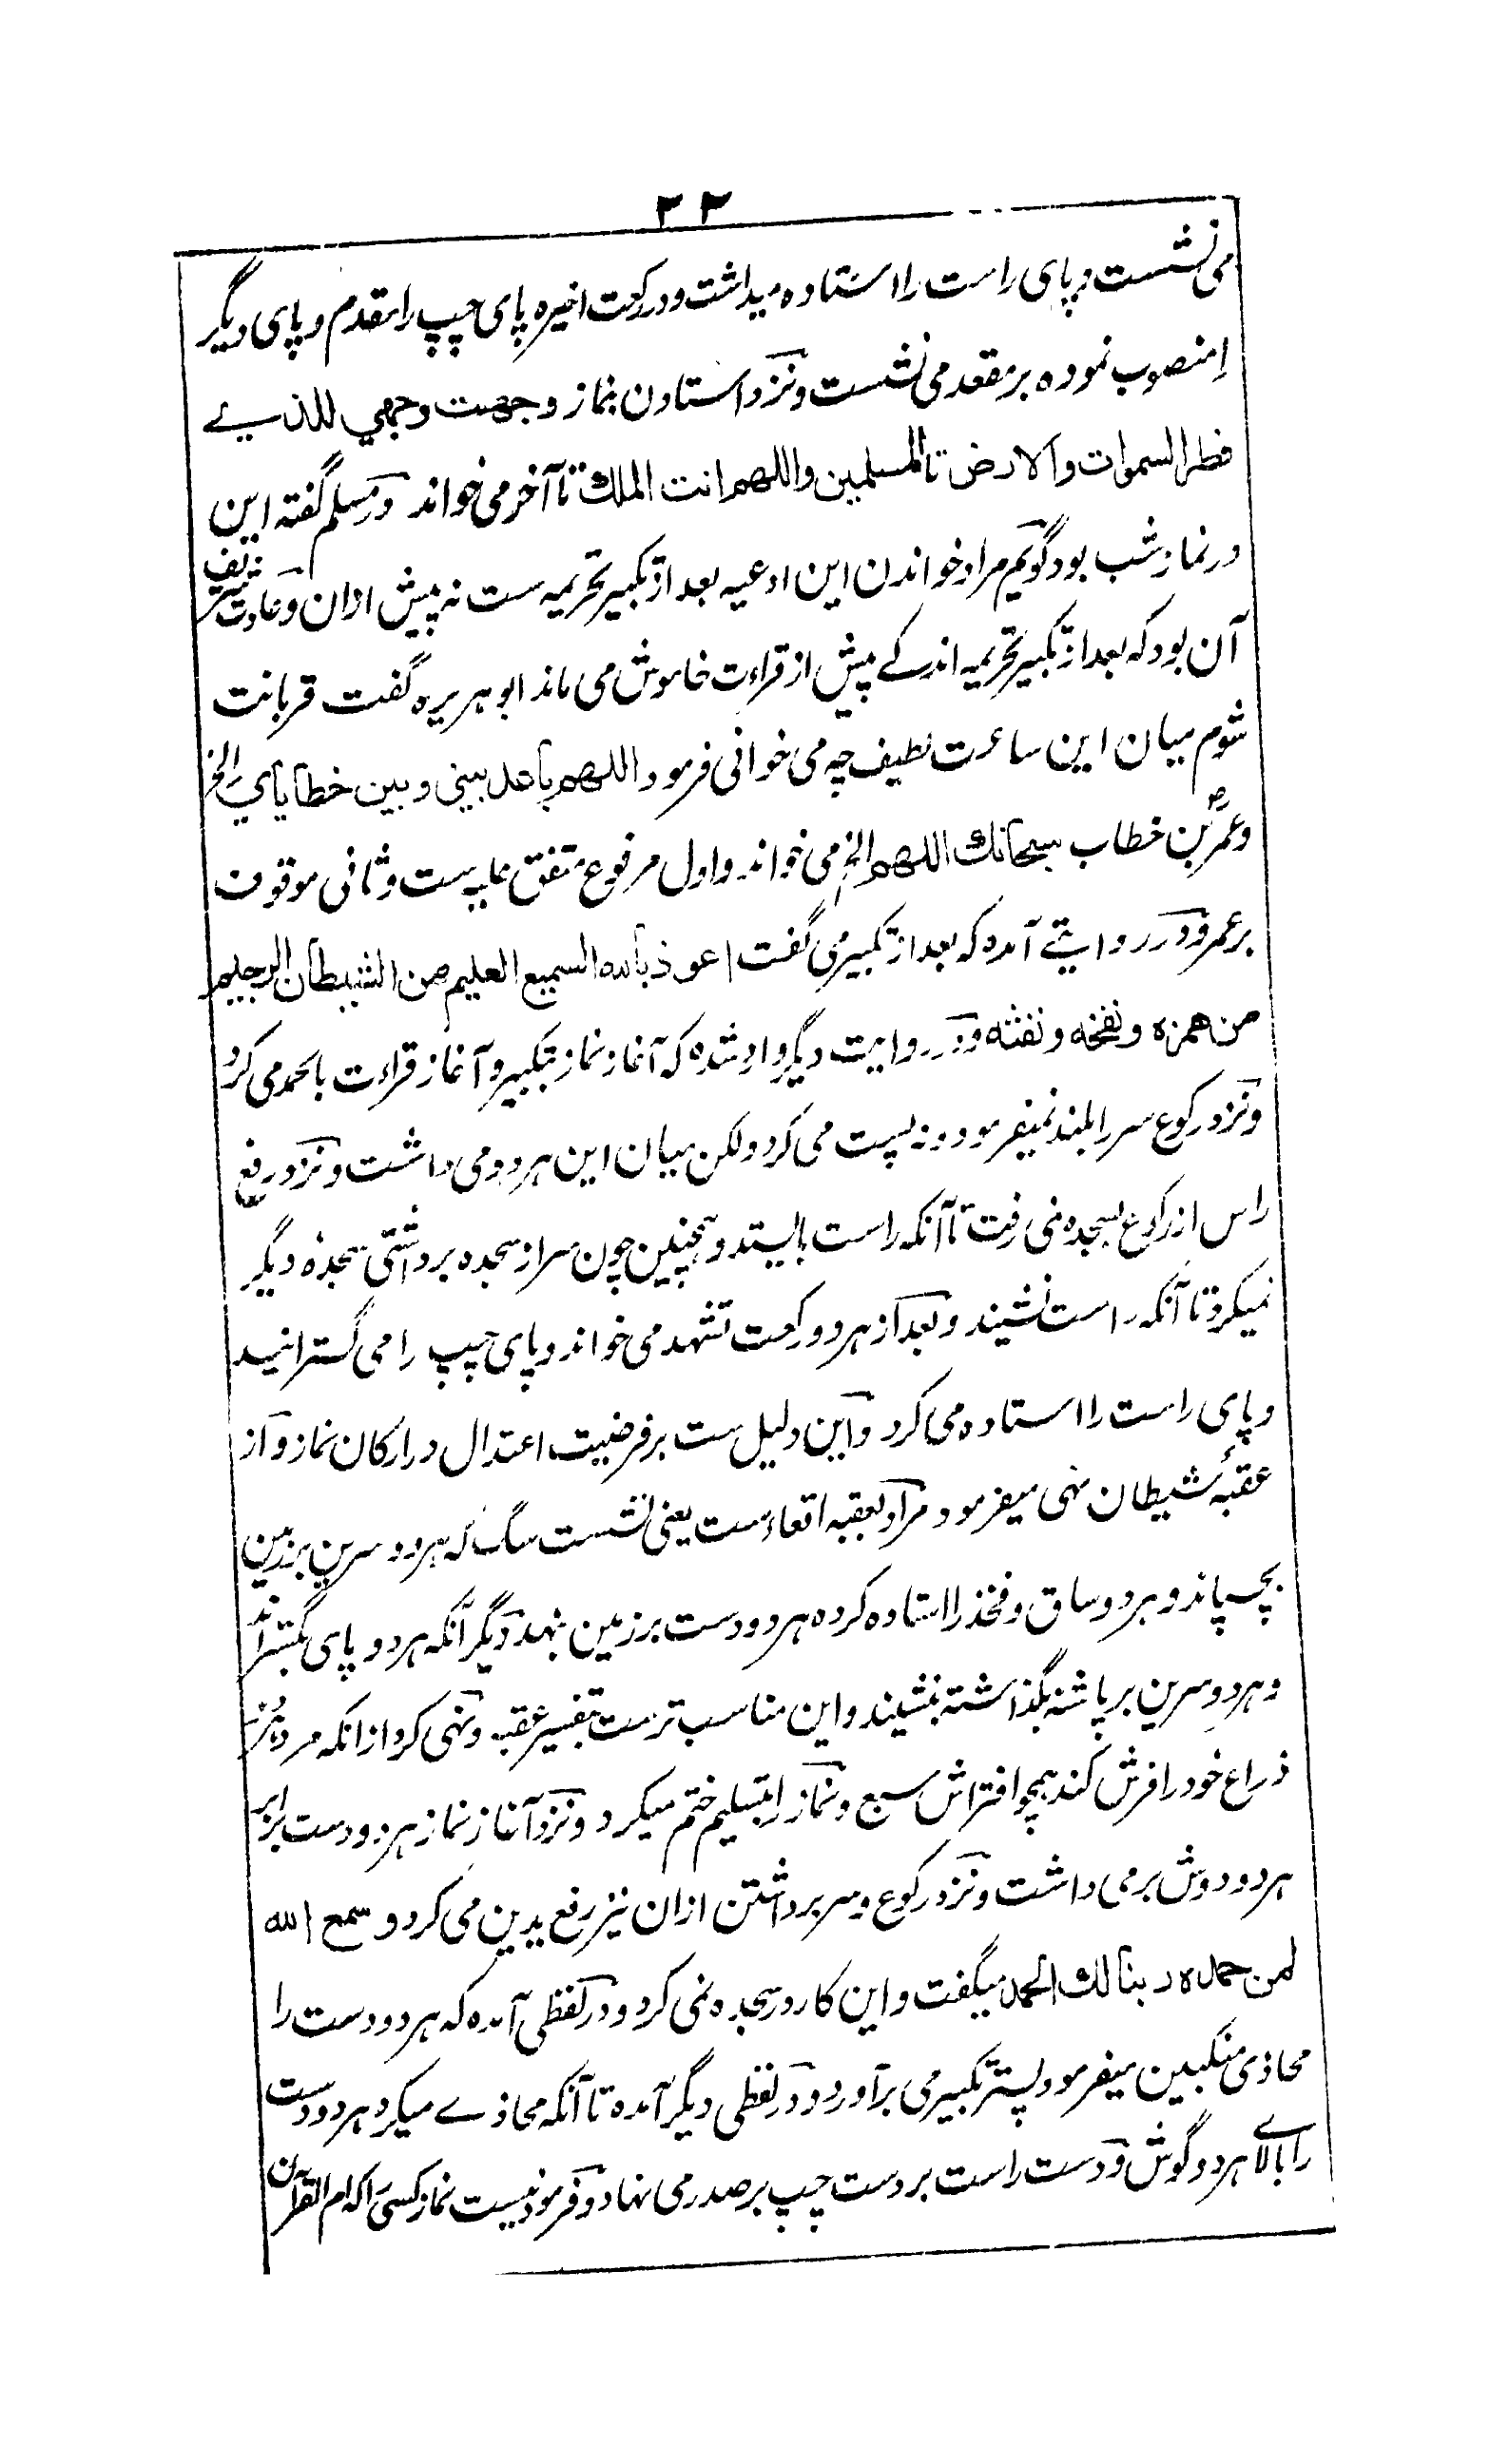 ۳۳
می نشست و پای راست را استاده میداشت و در رکعت اخیره پای چپ را مقدم و پای دیگر
را منصوب نموده بر مقعد می نشست و نزد استادن بنماز وجهت وجهي للذي
فطر السموات والارض تا المسلمین و اللهم انت الملك تا آخر می خواند و در مسلم گفته این
در نماز شب بود گویم مراد خواندن این ادعیه بعد از تکبیر تحریمه ست نه پیش ازان و عادت شریف
آن بود که بعد از تکبیر تحریمه اندکے پیش از قراءت خاموش می ماند ابو هریره گفت قربانت
شوم میان این ساعت لطیف چه می خوانی فرمود اللهم باعد بيني وبين خطاياي الخ
و عمرؓ بن خطاب سبحانك اللهم الخ می خواند و اول مرفوع متفق علیه ست و ثانی موقوف
بر عمر و در روایتے آمده که بعد از تکبیر می گفت اعوذ بالله السميع العليم من الشيطان الرجيم
من همزه و نفخه و نفثه و در روایت دیگر وارد شده که آغاز نماز بتکبیر و آغاز قراءت بالحمد می کرد
و نزد رکوع سر را بلند نمیفرمود و نه پست می کرد ولکن میان این هر دو می داشت و نزد رفع
راس از رکوع بسجده نمی رفت تا آنکه راست بایستد و همچنین چون سر از سجده برداشتی سجدهٔ دیگر
نمیکرد تا آنکه راست نشیند و بعد از هر دو رکعت تشهد می خواند و پای چپ را می گسترانید
و پای راست را استاده می کرد و این دلیل ست بر فرضیت اعتدال در ارکان نماز و از
عقبهٔ شیطان نهی میفرمود مراد بعقبه اقعاء ست یعنی نشست سگ که هر دو سرین بر زمین
بچسپاند و هر دو ساق و فخذ را استاده کرده هر دو دست بر زمین نهد دیگر آنکه هر دو پای بگستراند
و هر دو سرین بر پاشنه بگذاشته بنشیند و این مناسب تر ست بتفسیر عقبه و نهی کرد از آنکه مرد هر دو
ذراع خود را فرش کند همچو افتراش سبع و نماز را بتسلیم ختم میکرد و نزد آغاز نماز هر دو دست برابر
هر دو دوش بر می داشت و نزد رکوع و سر برداشتن ازان نیز رفع یدین می کرد و سمع الله
لمن حمده ربنا لك الحمد میگفت و این کار در سجده نمی کرد و در لفظی آمده که هر دو دست را
محاذی منکبین میفرمود پستر تکبیر می برآورد و در لفظی دیگر آمده تا آنکه محاذے میکرد هر دو دست
را بالاے هر دو گوش و دست راست بر دست چپ بر صدر می نهاد و فرمود نیست نماز کسی را که ام القرآن